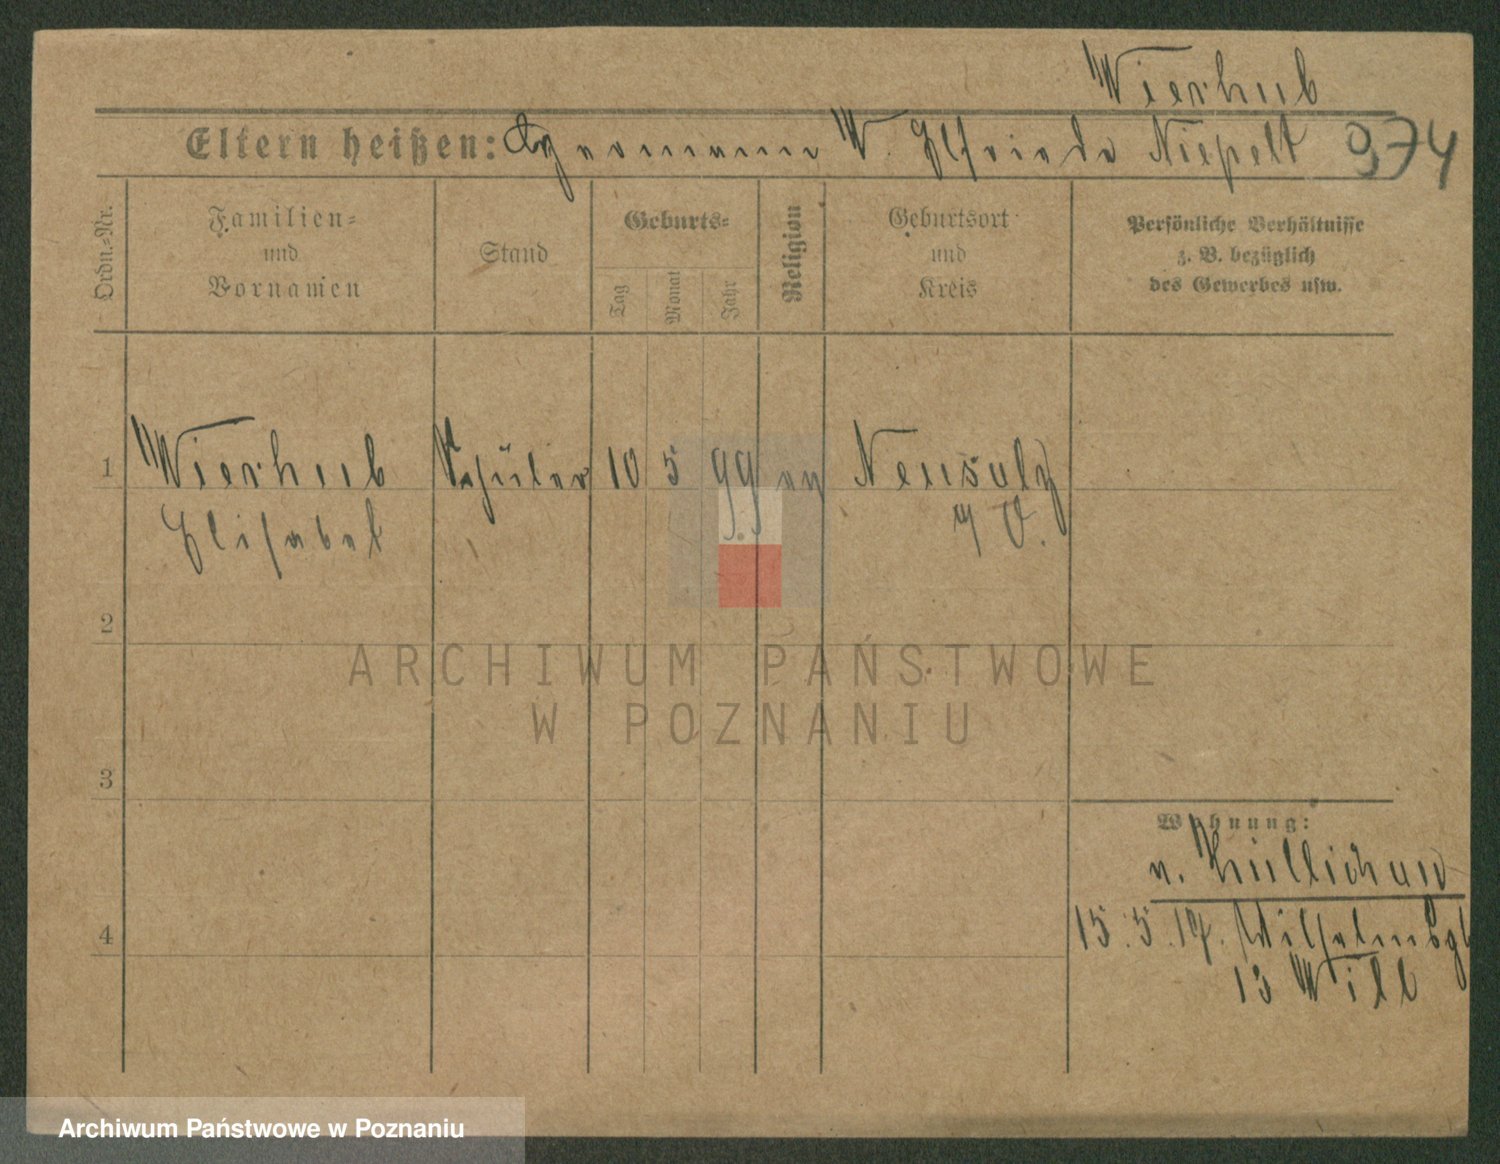 Wierhub
Eltern heißen: Hermann W. Elfriede Niepelt 974
Ordn.=Nr.
Familien=
und
Vornamen
Stand
Geburts=
Tag
Monat
Jahr
Religion
Geburtsort
und
Kreis
Persönliche Verhältnisse
z. B. bezüglich
des Gewerbes usw.
1 Wierhub Schüler 10 5 99 ev Neusalz
Elisabet
2
3
4
Wohnung:
v. Züllichau
15. 5. 17.
13 Will
ARCHIWUM PAŃSTWOWE
W POZNANIU
Archiwum Państwowe w Poznaniu